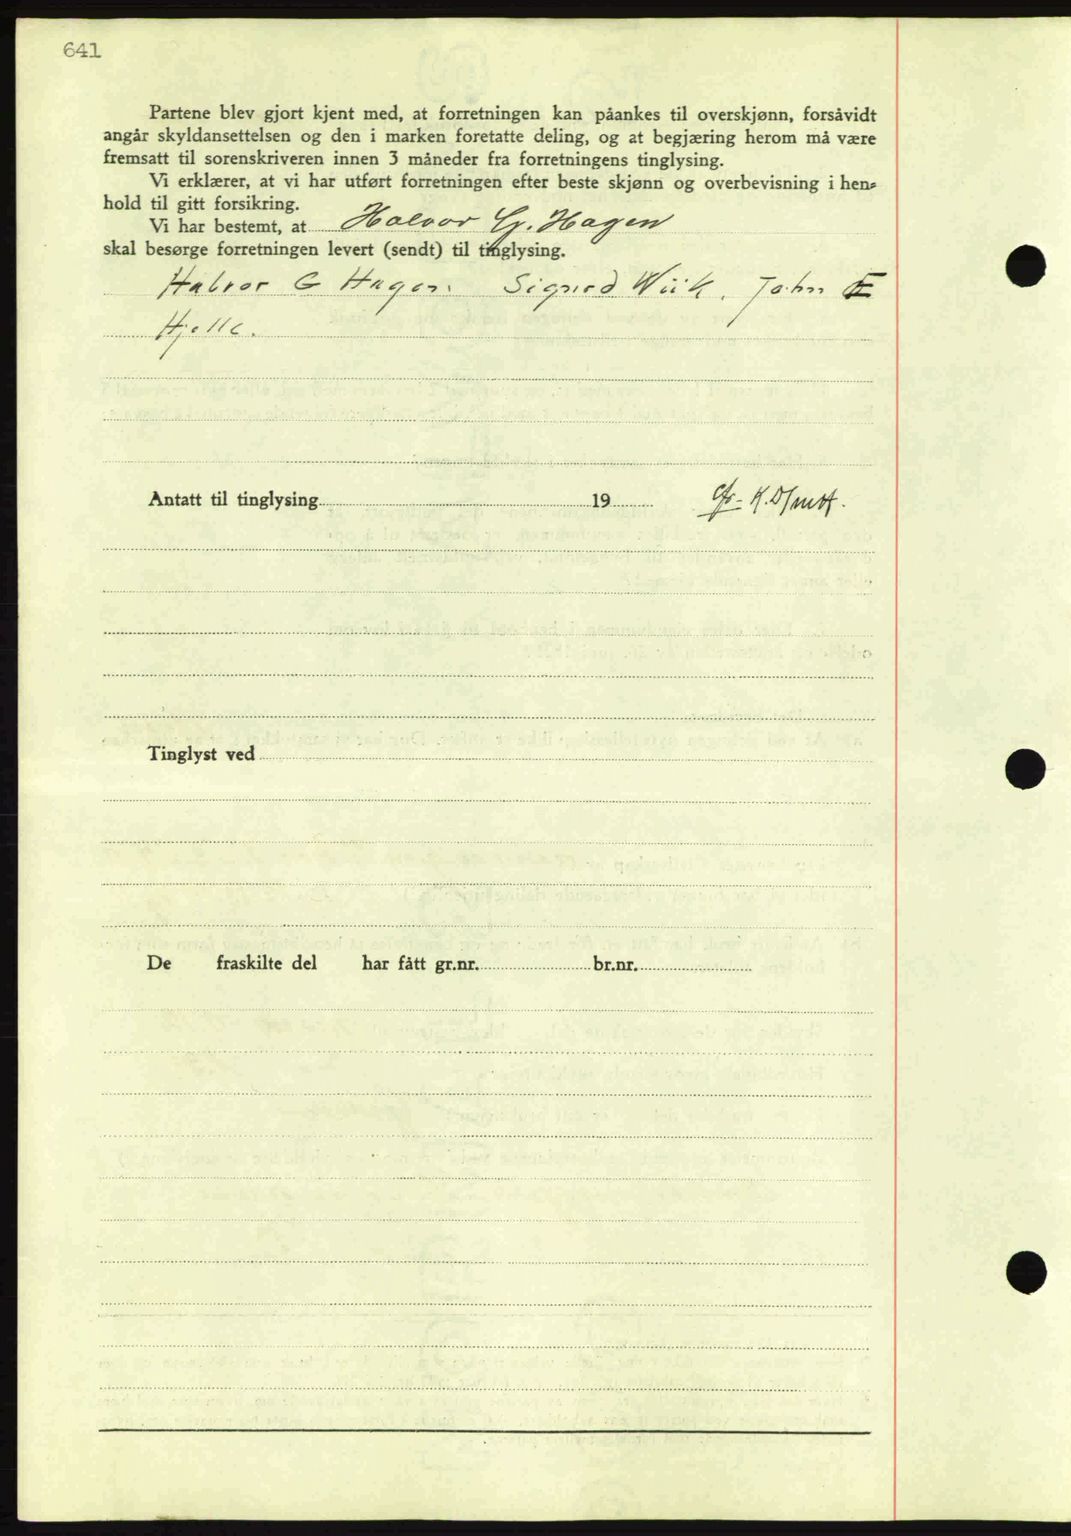 641
Partene blev gjort kjent med, at forretningen kan påankes til overskjønn, forsåvidt
angår skyldansettelsen og den i marken foretatte deling, og at begjæring herom må være
fremsatt til sorenskriveren innen 3 måneder fra forretningens tinglysing.
Vi erklærer, at vi har utført forretningen efter beste skjønn og overbevisning i hen-
hold til gitt forsikring.
Vi har bestemt, at Halvor G. Hagen
skal besørge forretningen levert (sendt) til tinglysing.
Halvor G Hagen. Sigurd Wiik. John E
Hjelle.
Antatt til tinglysing 19
Tinglyst ved
De fraskilte del har fått gr.nr. br.nr.